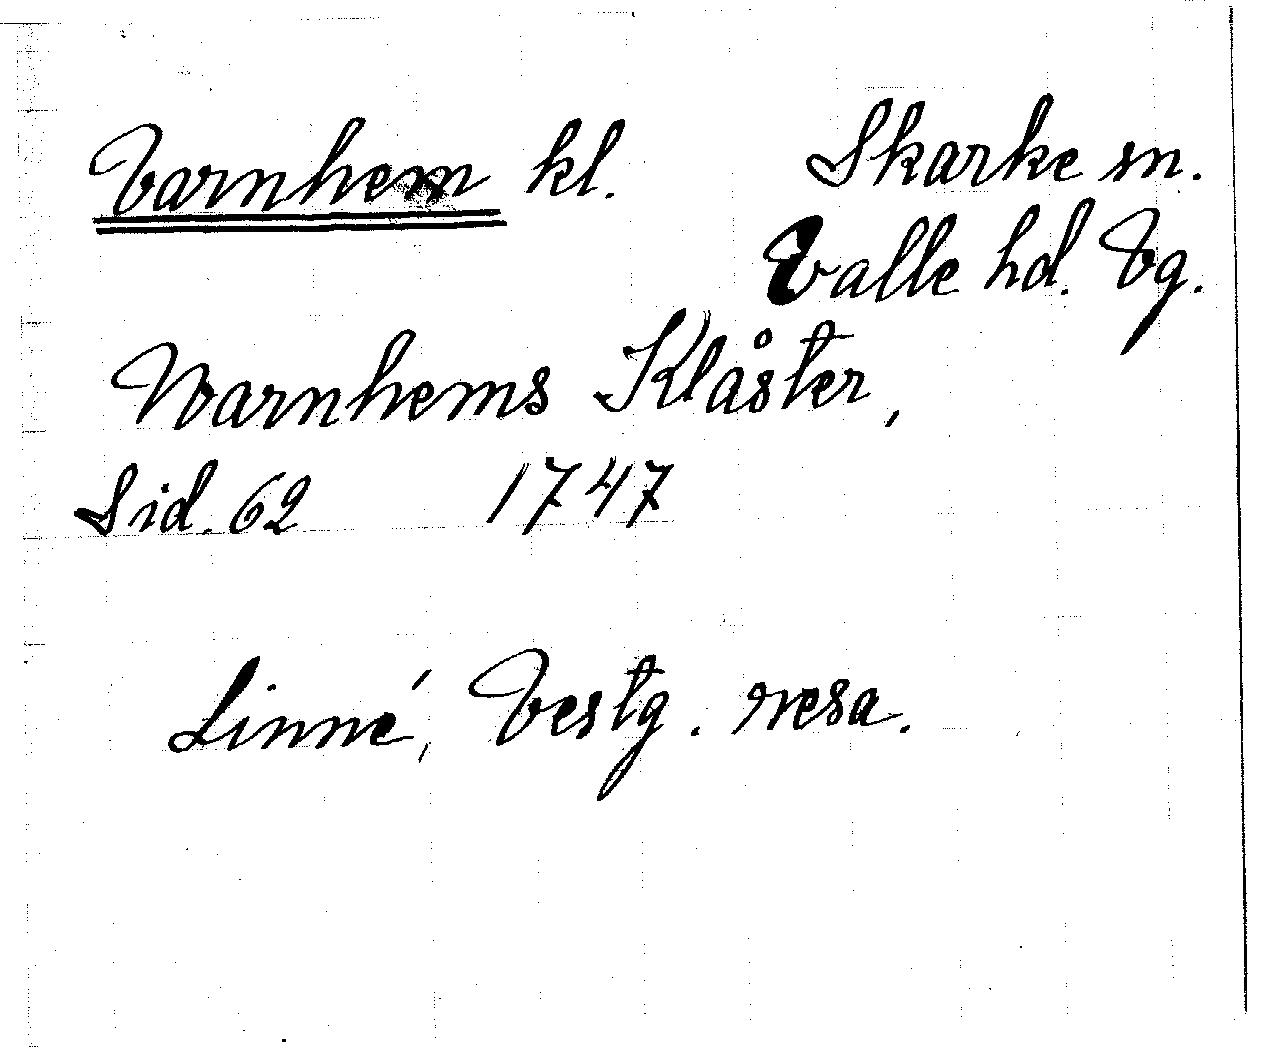 Varnhem kl. Skarke sn.
Valle hd. Vg.
Warnhems Klåster,
Sid. 62 1747
Linné, Vestg. resa.